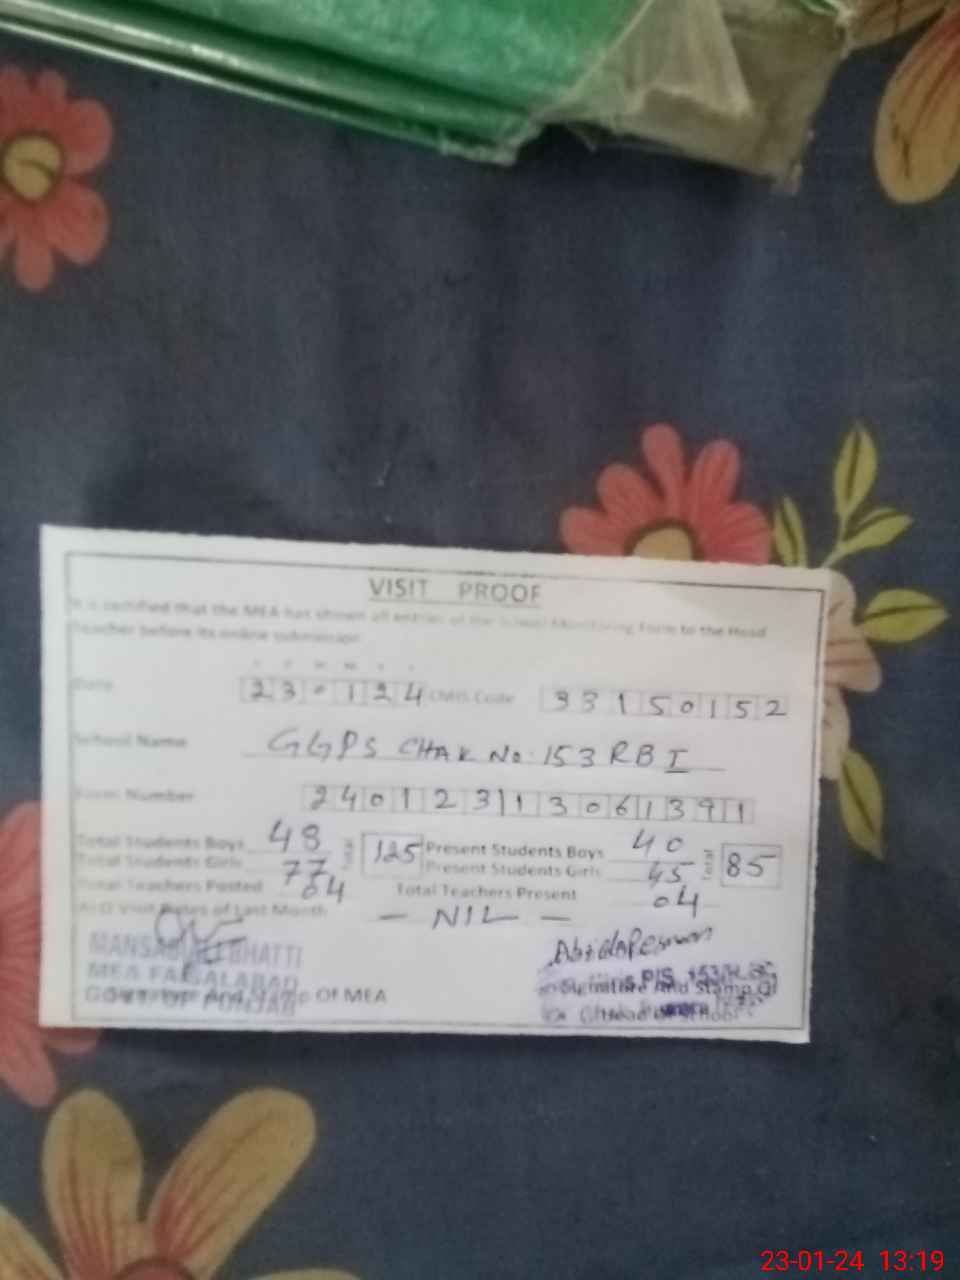 VISIT PROOF
It is certified that the MEA has shown all entries of the School Monitoring Form to the Head
Teacher before its online submission
Date 230124 EMIS Code 33150152
School Name GGPS CHAK No. 153 RB I
Form Number 24012313061391
Total Students Boys 48 Total 125 Present Students Boys 40 Total 85
Total Students Girls 77 Present Students Girls 45
Total Teachers Posted 04 Total Teachers Present 04
AEO Visit Dates of Last Month — NIL —
MANSAB ALI BHATTI
MEA FAISALABAD
GOVT OF PUNJAB
Of MEA
Signature And Stamp Of
Head of School
23-01-24 13:19